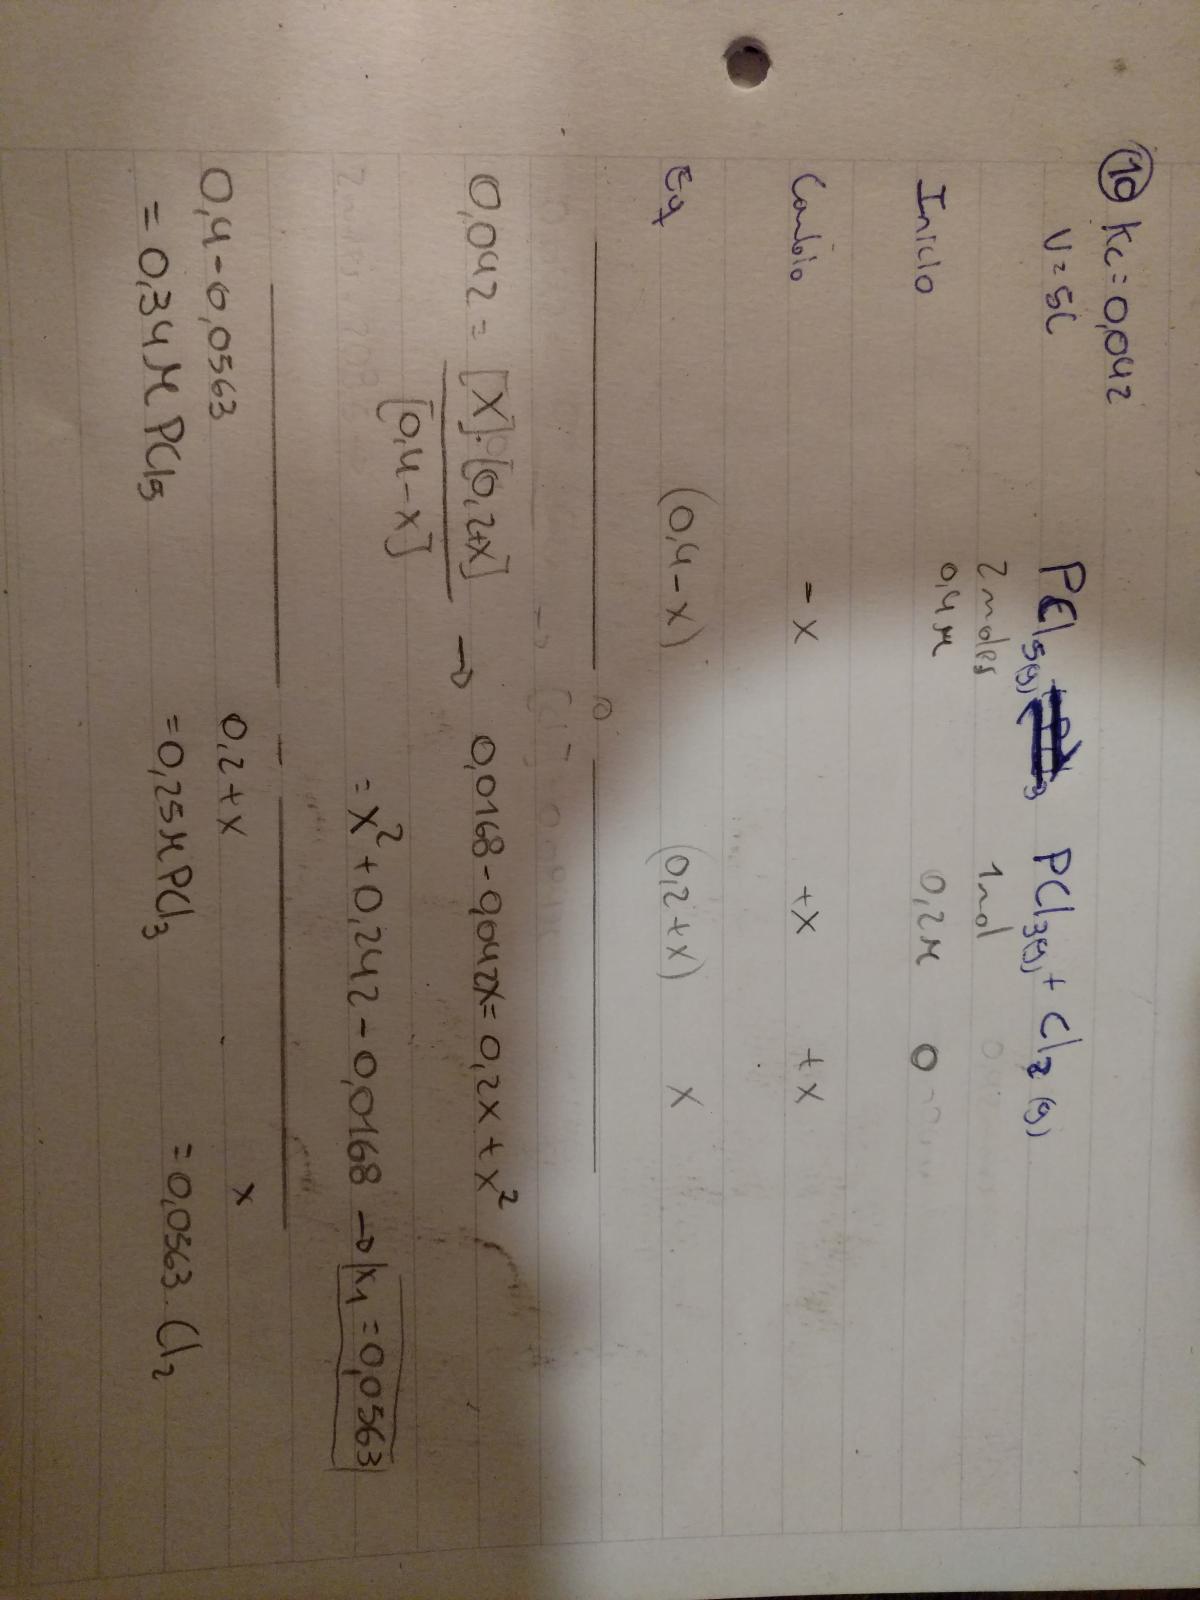 10 Kc=0,042
V=5L
PCl5(g) PCl3(g) + Cl2 (g)
2 moles 1mol
Inicio 0,4M 0,2M 0
Cambio -x +x +x
Eq (0,4-x) (0,2+x) x
0,042 = [X]·[0,2+x] / [0,4-x] → 0,0168-0,042x=0,2x+x²
= x²+0,242-0,0168 → x1=0,0563
0,4-0,0563 0,2+x x
= 0,34M PCl5 =0,25M PCl3 =0,0563·Cl2